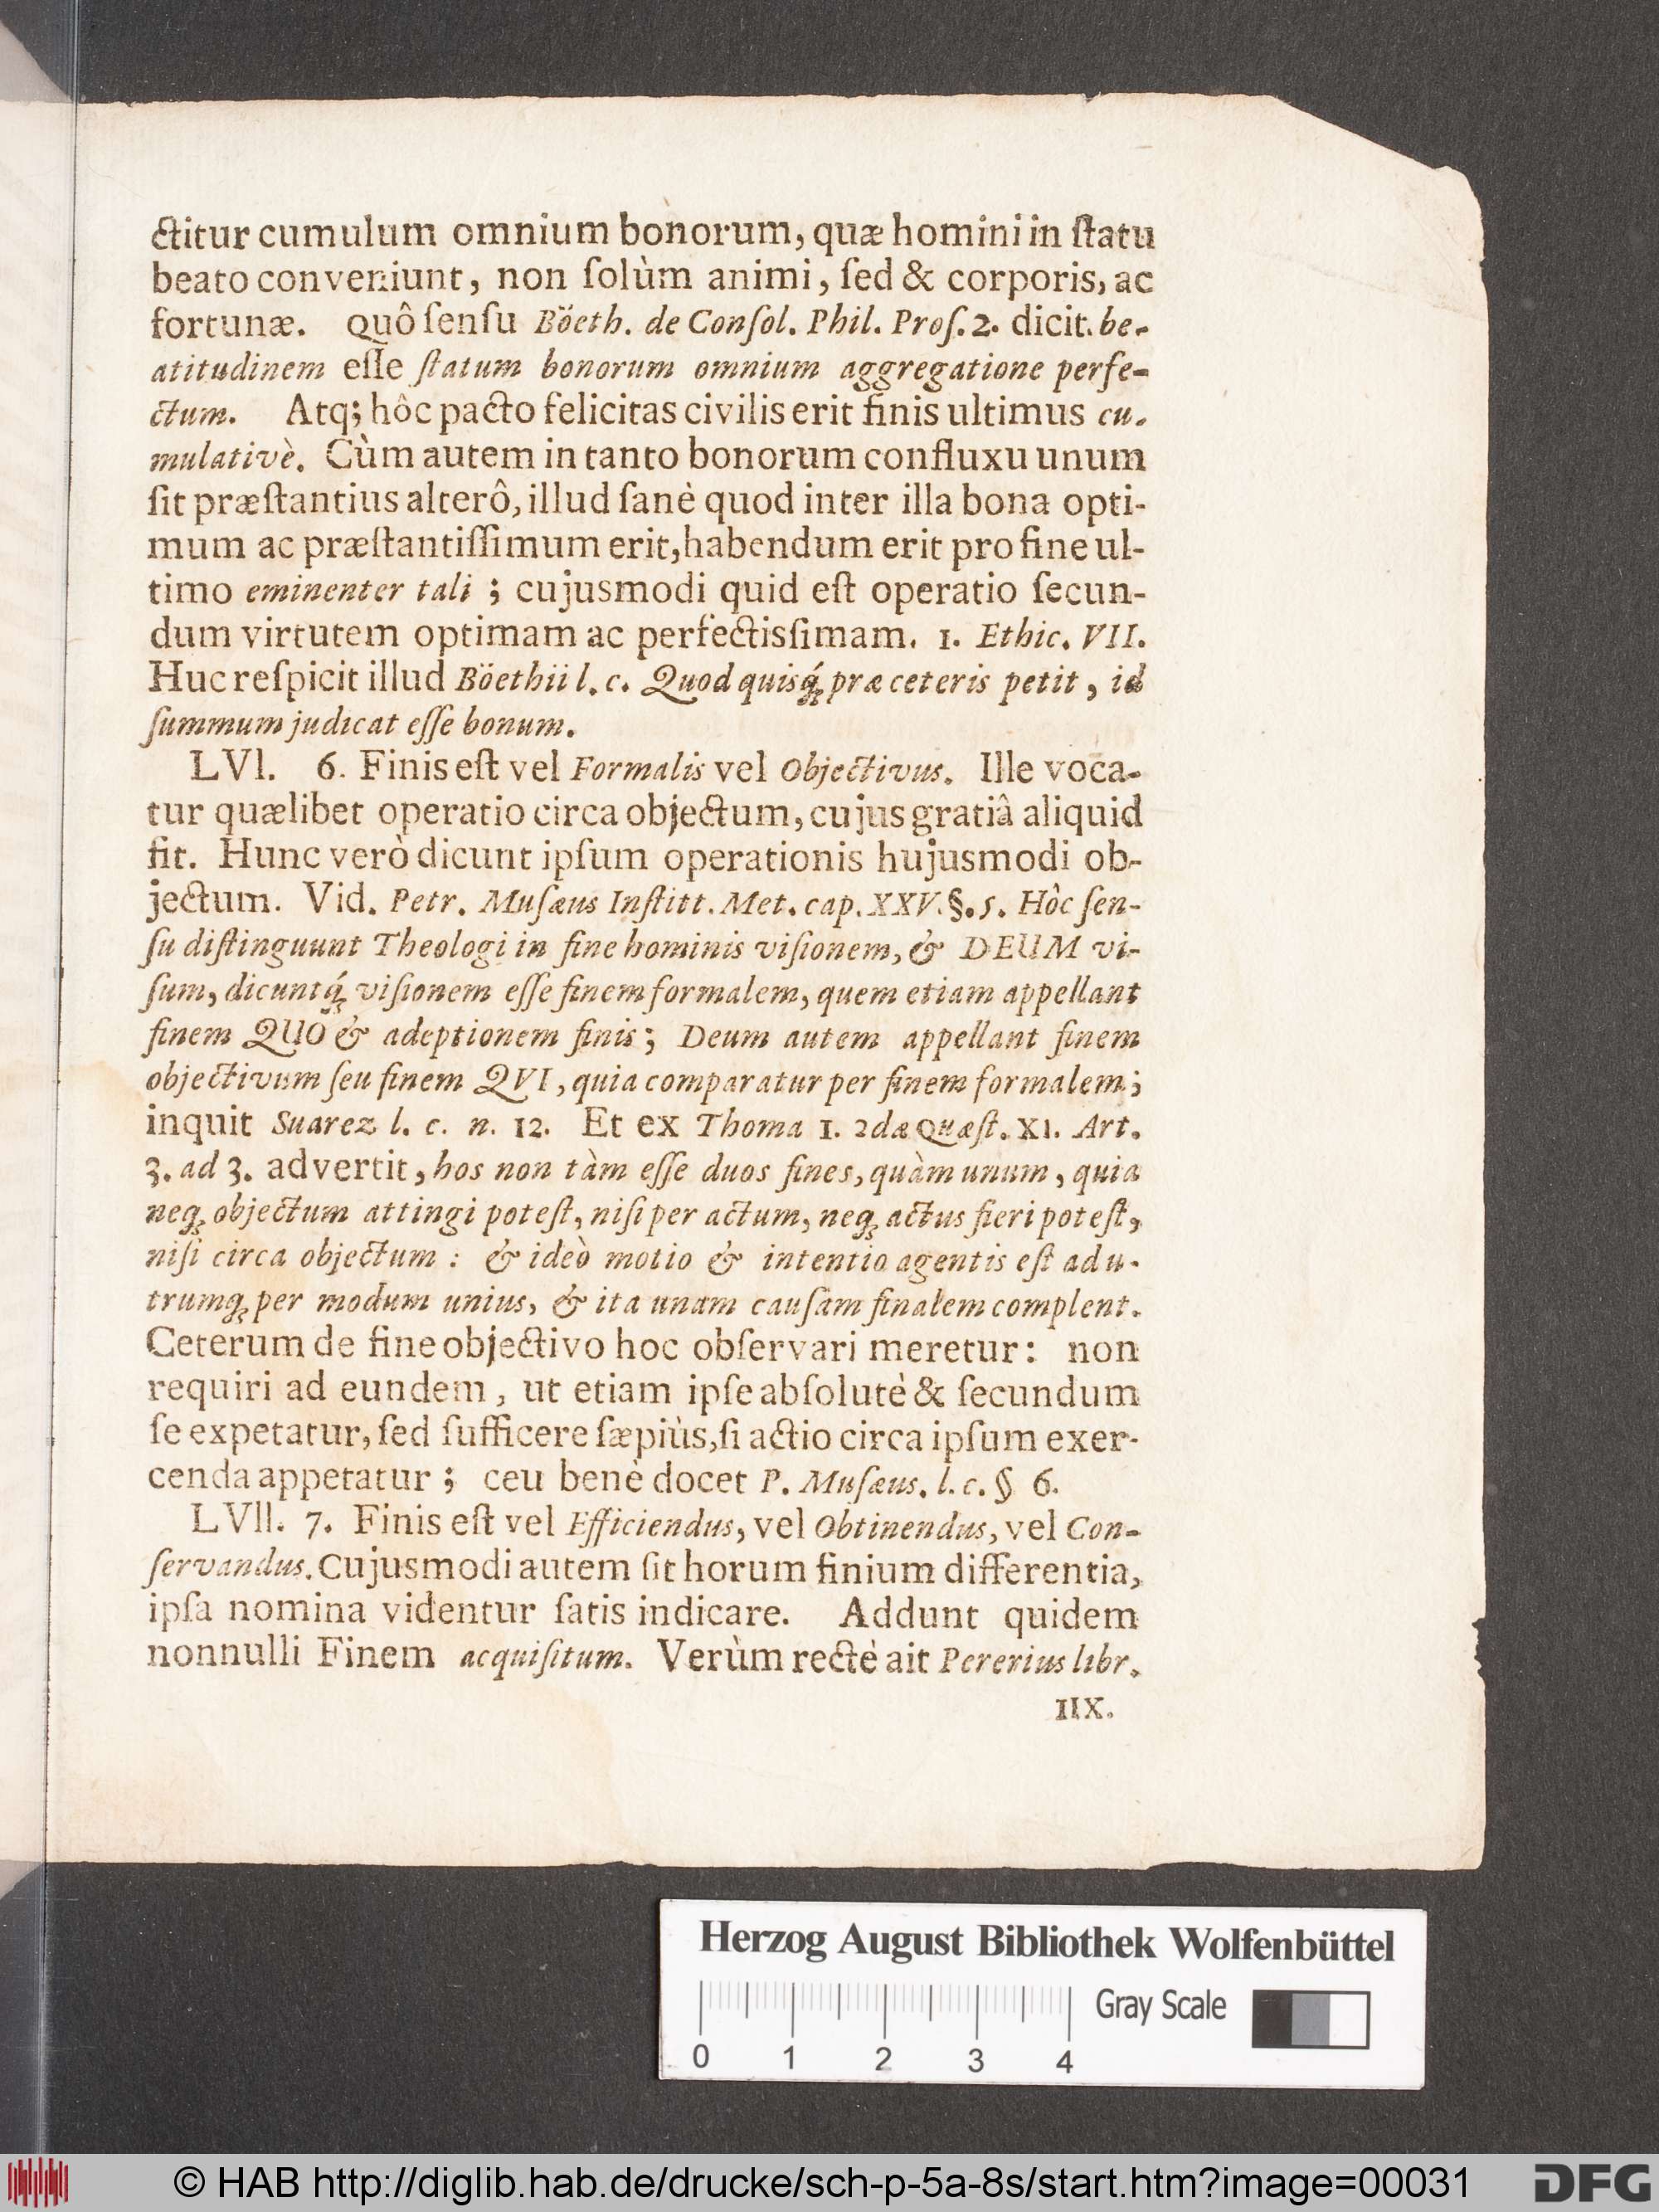 ctitur cumulum omnium bonorum, quæ homini in ſtatu
beato conveniunt, non ſolùm animi, ſed & corporis, ac
fortunæ. Quô ſenſu Böeth. de Conſol. Phil. Proſ. 2. dicit. be-
atitudinem eſſe ſtatum bonorum omnium aggregatione perfe-
ctum. Atq; hôc pacto felicitas civilis erit finis ultimus cu-
mulativè. Cùm autem in tanto bonorum confluxu unum
ſit præſtantius alterô, illud ſanè quod inter illa bona opti-
mum ac præſtantiſſimum erit, habendum erit pro fine ul-
timo eminenter tali ; cujusmodi quid eſt operatio ſecun-
dum virtutem optimam ac perfectisſimam. 1. Ethic. VII.
Huc reſpicit illud Böethii l. c. Quod quisq́; præ ceteris petit, id
ſummum judicat eſſe bonum.
LVI. 6. Finis eſt vel Formalis vel Objectivus. Ille voca-
tur quælibet operatio circa objectum, cujus gratiâ aliquid
fit. Hunc verò dicunt ipſum operationis hujusmodi ob-
jectum. Vid. Petr. Muſæus Inſtitt. Met. cap. XXV. §. 5. Hôc ſen-
ſu diſtinguunt Theologi in fine hominis viſionem, & DEUM vi-
ſum, dicuntq́; viſionem eſſe finem formalem, quem etiam appellant
finem QUO & adeptionem finis; Deum autem appellant finem
objectivum ſeu finem QVI, quia comparatur per finem formalem;
inquit Suarez l. c. n. 12. Et ex Thoma 1. 2dæ Quæſt. XI. Art.
3. ad 3. advertit, hos non tàm eſſe duos fines, quàm unum, quia
neq; objectum attingi poteſt, niſi per actum, neq; actus fieri poteſt,
niſi circa objectum : & ideò motio & intentio agentis eſt ad u-
trumq; per modum unius, & ita unam cauſam finalem complent.
Ceterum de fine objectivo hoc obſervari meretur: non
requiri ad eundem, ut etiam ipſe abſolutè & ſecundum
ſe expetatur, ſed ſufficere ſæpiùs, ſi actio circa ipſum exer-
cenda appetatur ; ceu benè docet P. Muſæus. l. c. § 6.
LVII. 7. Finis eſt vel Efficiendus, vel Obtinendus, vel Con-
ſervandus. Cujusmodi autem ſit horum finium differentia,
ipſa nomina videntur ſatis indicare. Addunt quidem
nonnulli Finem acquiſitum. Verùm rectè ait Pererius libr.
IIX.
Herzog August Bibliothek Wolfenbüttel
Gray Scale
0 1 2 3 4
© HAB http://diglib.hab.de/drucke/sch-p-5a-8s/start.htm?image=00031
DFG